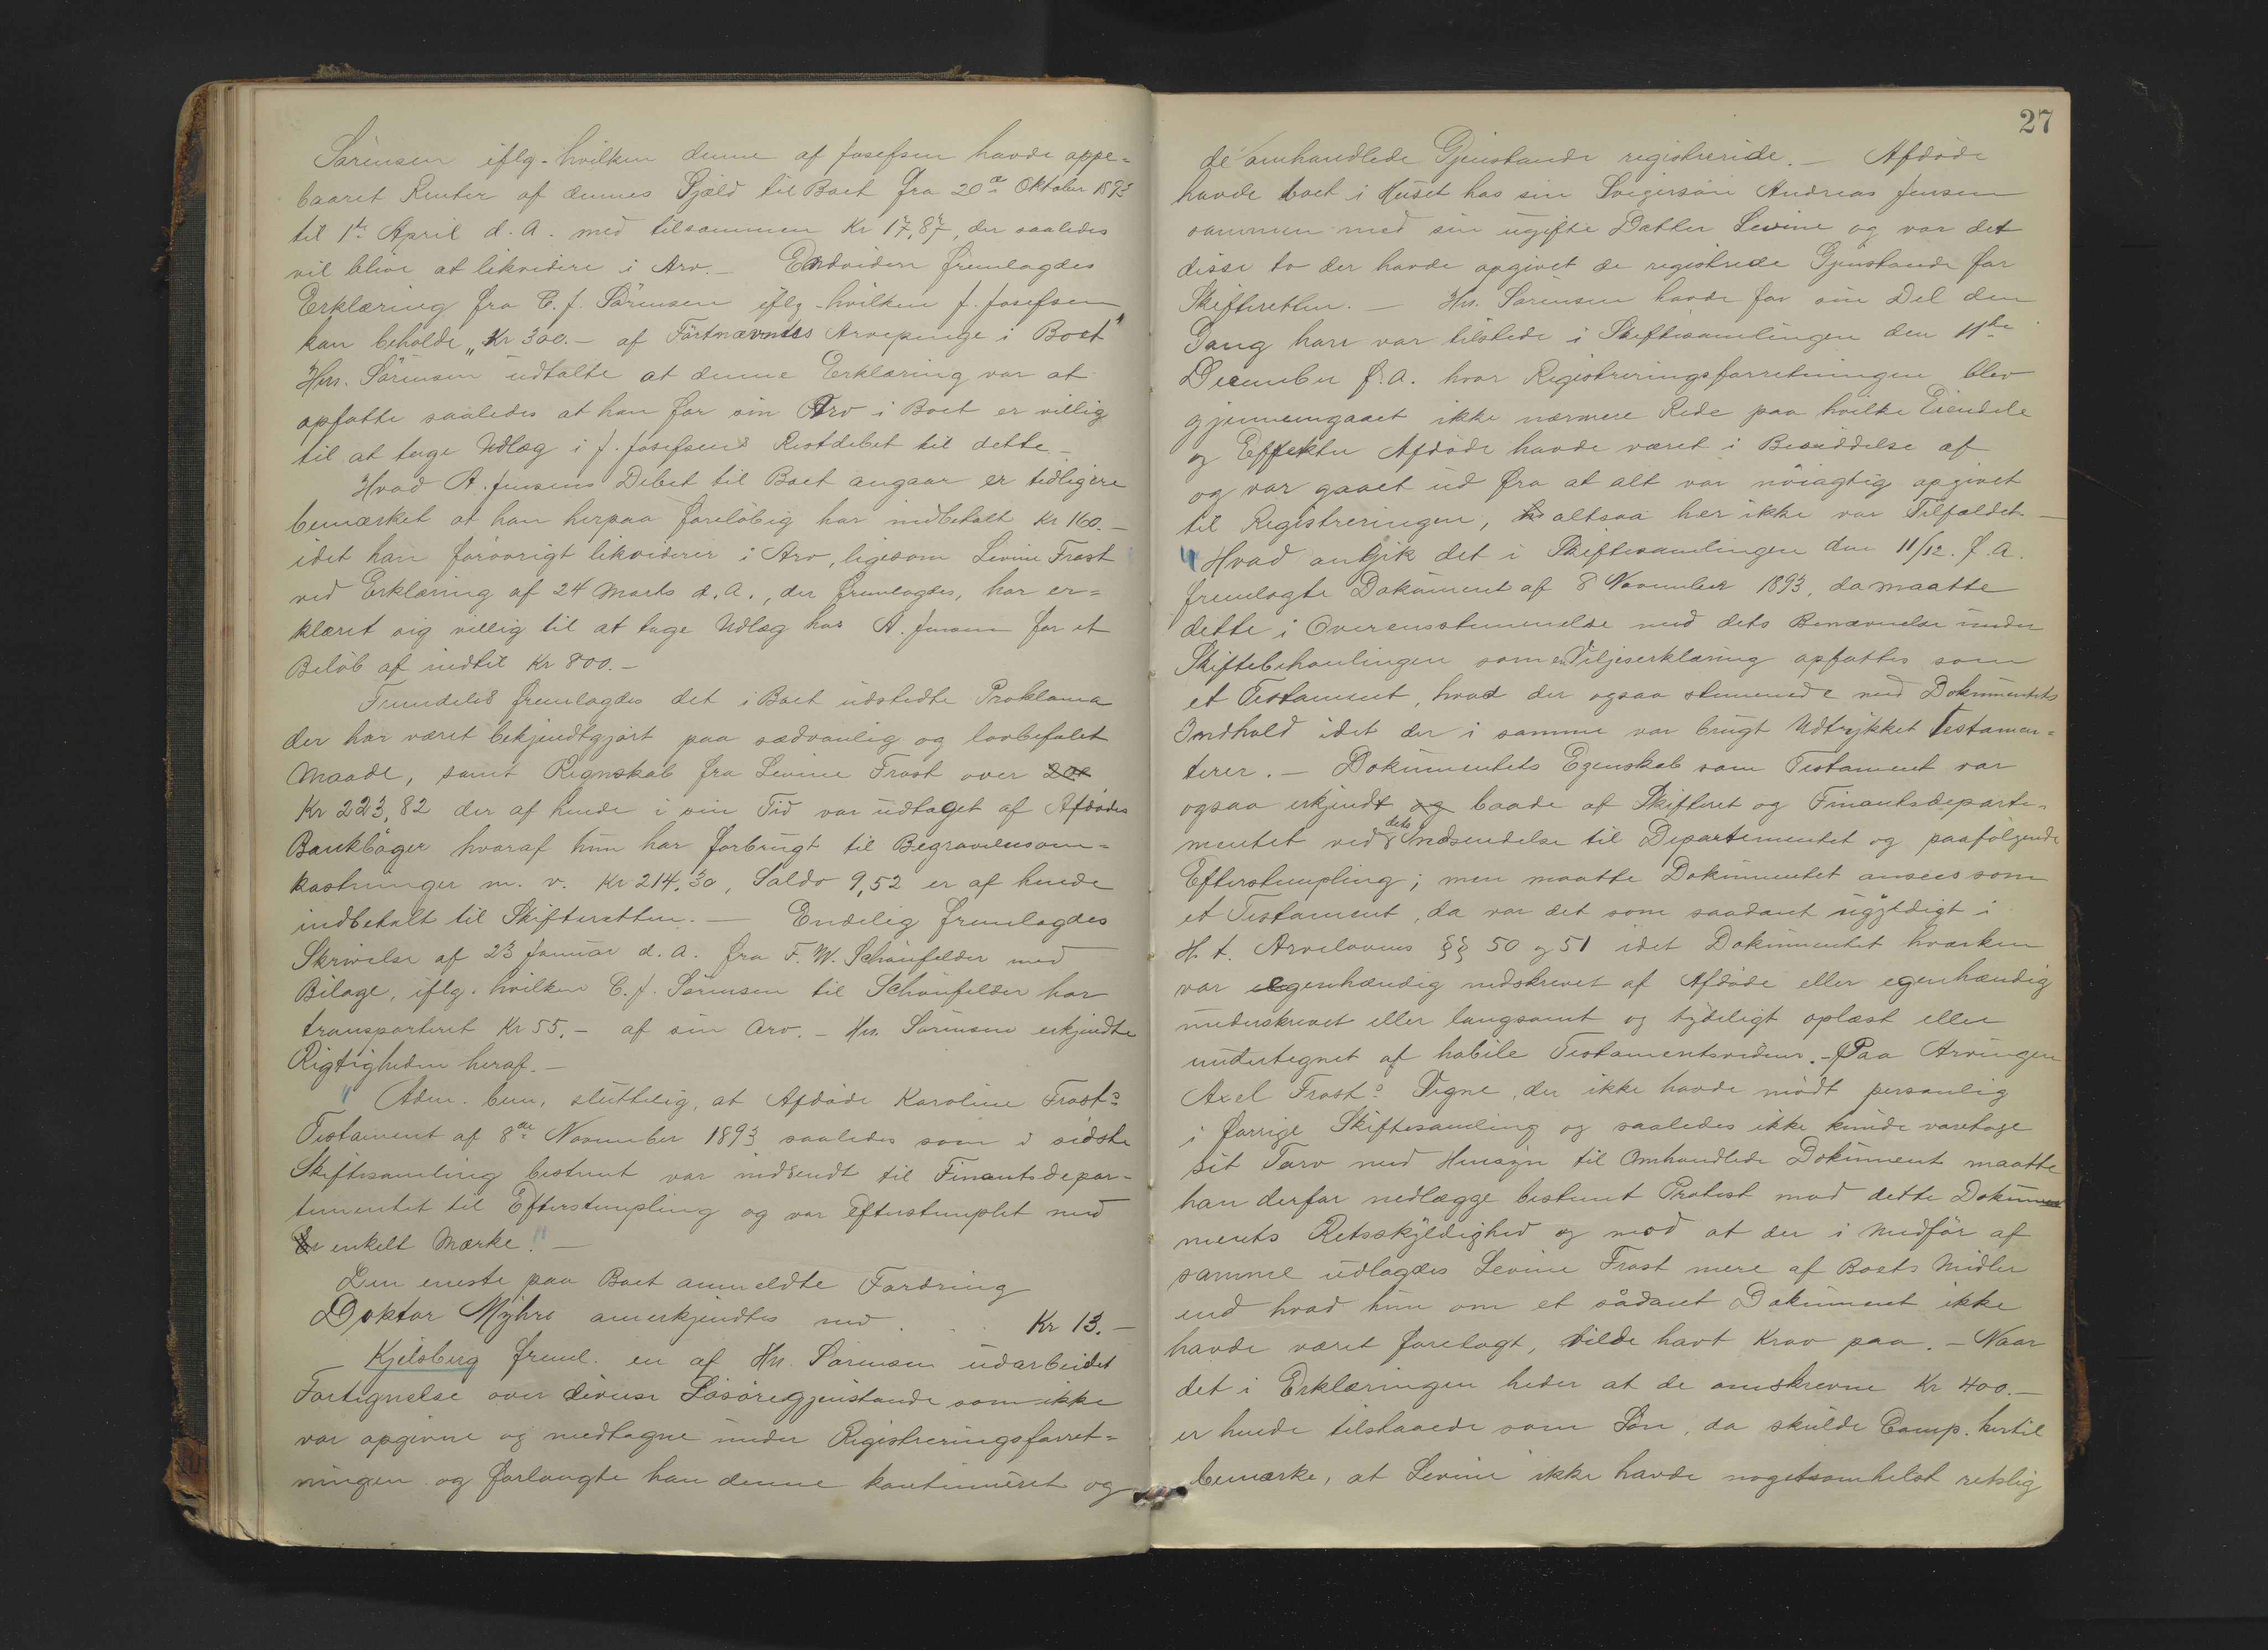 Sörensen iflg. hvilken denne af Josefsen havde oppe=
baaret Renter af dennes Gjæld til Boet fra 20de Oktober 1893
til 1ste April d. A. med tilsammen Kr 17,87, der saaledes
vil blive at likvidere i Arv. — Endvidere fremlagdes
Erklæring fra C. J. Sörensen iflg. hvilken J. Josefsen
kan beholde „Kr 300.- af Förstnævntes Arvepenge i Boet"
Hrr. Sörensen udtalte at denne Erklæring var at
opfatte saaledes at han for sin Arv i Boet er villig
til at tage Udlæg i J. Josefsens Restdebet til dette —
Hvad A. Jensens Debet til Boet angaar er tidligere
bemærket at han herpaa foreløbig har indbetalt Kr 160.—
idet han forøvrigt likviderer i Arv, ligesom Levine Frost
ved Erklæring af 24 Marts d. A., der fremlagdes, har er=
klæret sig villig til at tage Udlæg hos A. Jensen for et
Beløb af indtil Kr 800.—
Fremdeles fremlagdes det i Boet udstedte Proklama
der har været bekjendtgjort paa sædvanlig og lovbefalet
Maade, samt Regnskab fra Levine Frost over
Kr 223,82 der af hende i sin Tid var udtaget af Afdødes
Bankbøger hvoraf hun har forbrugt til Begravelsesom=
kostninger m. v. Kr 214,30, Saldo 9,52 er af hende
indbetalt til Skifteretten. — Endelig fremlagdes
Skrivelse af 23 Januar d. A. fra F. W. Schönfelder med
Bilage, iflg. hvilken C. J. Sörensen til Schönfelder har
transporteret Kr 55.- af sin Arv. — Hrr. Sörensen erkjendte
Rigtigheden heraf. —
" Adm. bem. sluttelig, at Afdøde Karoline Frosts
Testament af 8de November 1893 saaledes som i sidste
Skiftesamling bestemt var indsendt til Finantsdepar=
tementet til Efterstempling og var Efterstemplet med
enkelt Mærke." —
Den eneste paa Boet anmeldte Fordring
Doktor Myhre anerkjendtes med . . . Kr 13.—
Kjelsberg freml. en af Hrr. Sörensen udarbeidet
Fortegnelse over diverse Løsøregjenstande som ikke
var opgivne og medtagne under Registreringsforret=
ningen og forlangte han denne kontinueret og
27
de omhandlede Gjenstande registrerede. — Afdøde
havde boet i Huset hos sin Svigersøn Andreas Jensen
sammen med sin ugifte Datter Levine og var det
disse to der havde opgivet de registrede Gjenstande for
Skifteretten. — Hrr. Sörensen havde for sin Del den
Gang han var tilstede i Skiftesamlingen den 11te
December f. A. hvor Registreringsforretningen blev
gjennemgaaet ikke nærmere Rede paa hvilke Eiendele
og Effekter Afdøde havde været i Besiddelse af
og var gaaet ud fra at alt var nøiagtig opgivet
til Registreringen, altsaa her ikke var Tilfældet. —
" Hvad angik det i Skiftesamlingen den 11/12. f. A.
fremlagte Dokument af 8 November 1893, da maatte
dette i Overensstemmelse med dets Benævnelse under
Skiftebehandlingen som en Viljeserklæring opfattes som
et Testament, hvad der ogsaa stemmede med Dokumentets
Indhold idet der i samme var brugt Udtrykket Testamen=
terer. — Dokumentets Egenskab som Testament var
ogsaa erkjendt og baade af Skifteret og Finantsdeparte=
mentet ved dets Indsendelse til Departementet og paafølgende
Efterstempling; men maatte Dokumentet ansees som
et Testament, da var det som saadant ugyldigt i
H. t. Arvelovens §§ 50 og 51 idet Dokumentet hverken
var egenhændig nedskrevet af Afdøde eller egenhændig
underskrevet eller langsomt og tydeligt oplæst eller
undertegnet af habile Testamentsvidner. — Paa Arvingen
Axel Frosts Vegne, der ikke havde mødt personlig
i forrige Skiftesamling og saaledes ikke kunde varetage
sit Tarv med Hensyn til Omhandlede Dokument maatte
han derfor nedlægge bestemt Protest mod dette Doku
ments Retsgyldighed og mod at der i Medfør af
samme udlagdes Levine Frost mere af Boets Midler
end hvad hun om et sådant Dokument ikke
havde været forelagt, vilde havt Krav paa. — Naar
det i Erklæringen heder at de omskrevne Kr 400.—
er hende tilstaaede som Løn, da skulde Comp. hertil
bemærke, at Levine ikke havde nogetsomhelst retslig